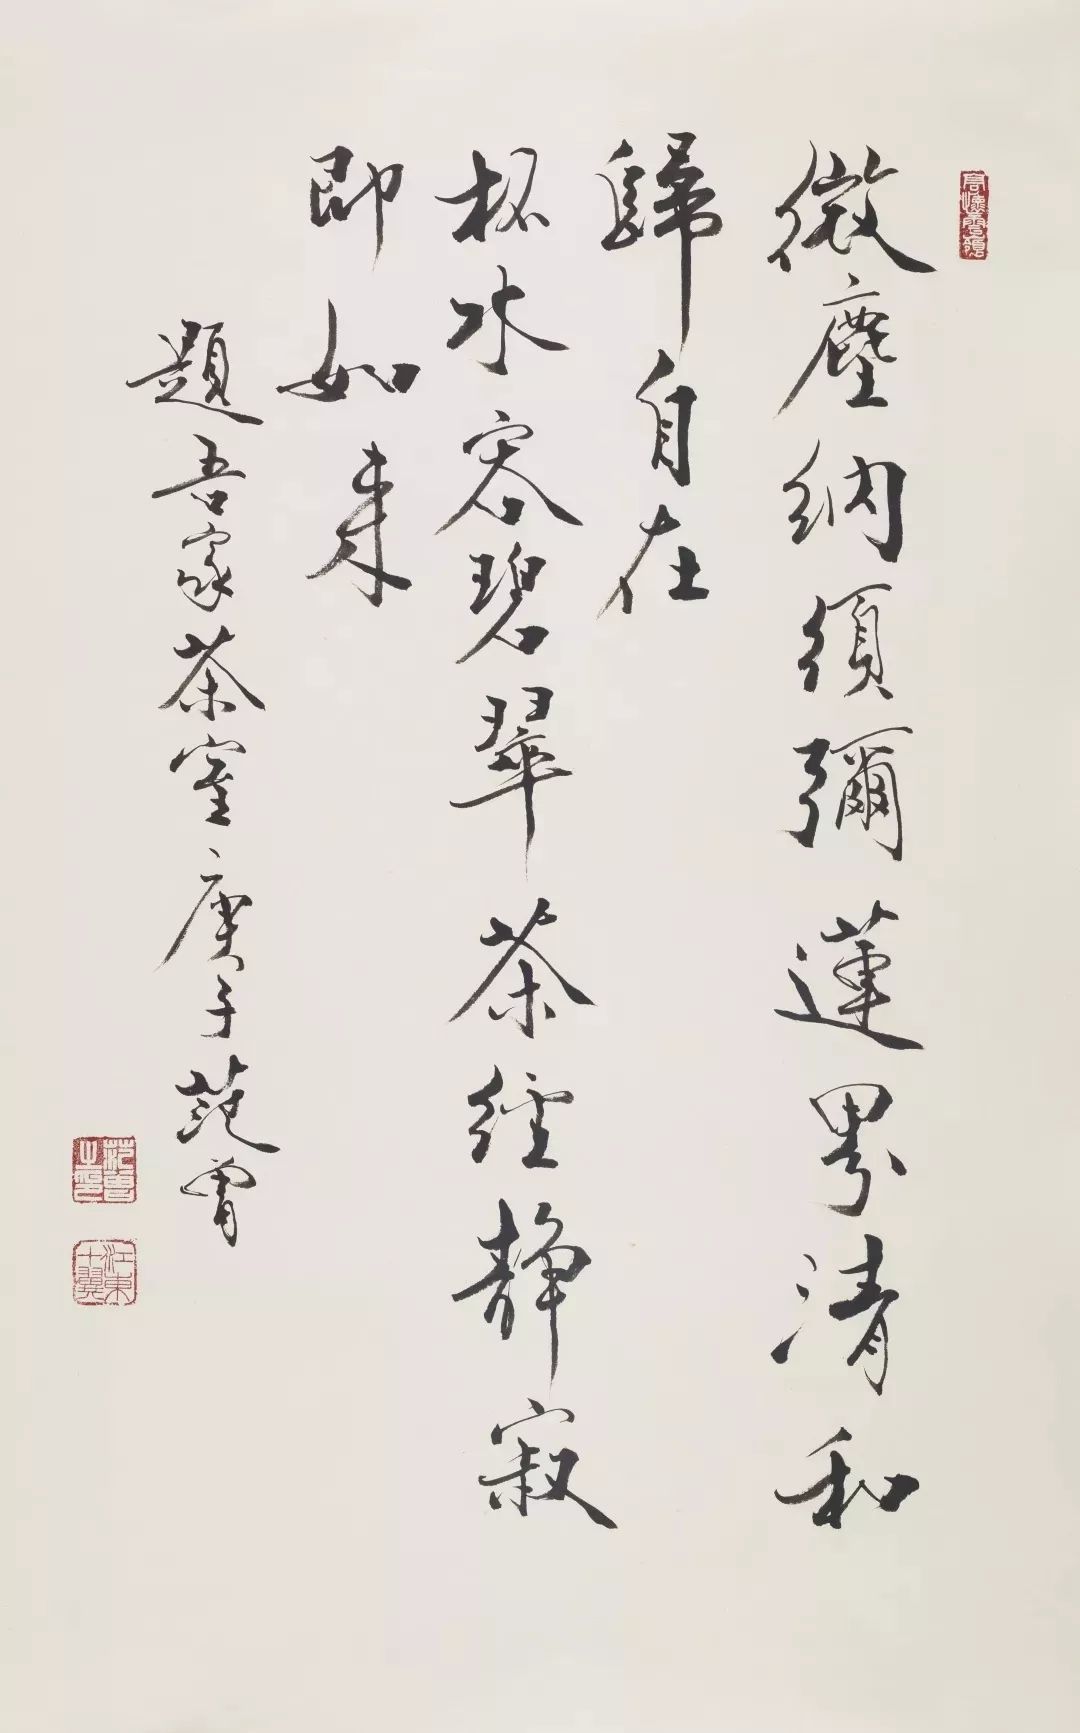 微塵納須彌蓮界清和
歸自在
杯水容碧翠茶經静寂
即如来
題吾家茶室庚子范曾
范曾之印
江東十翼